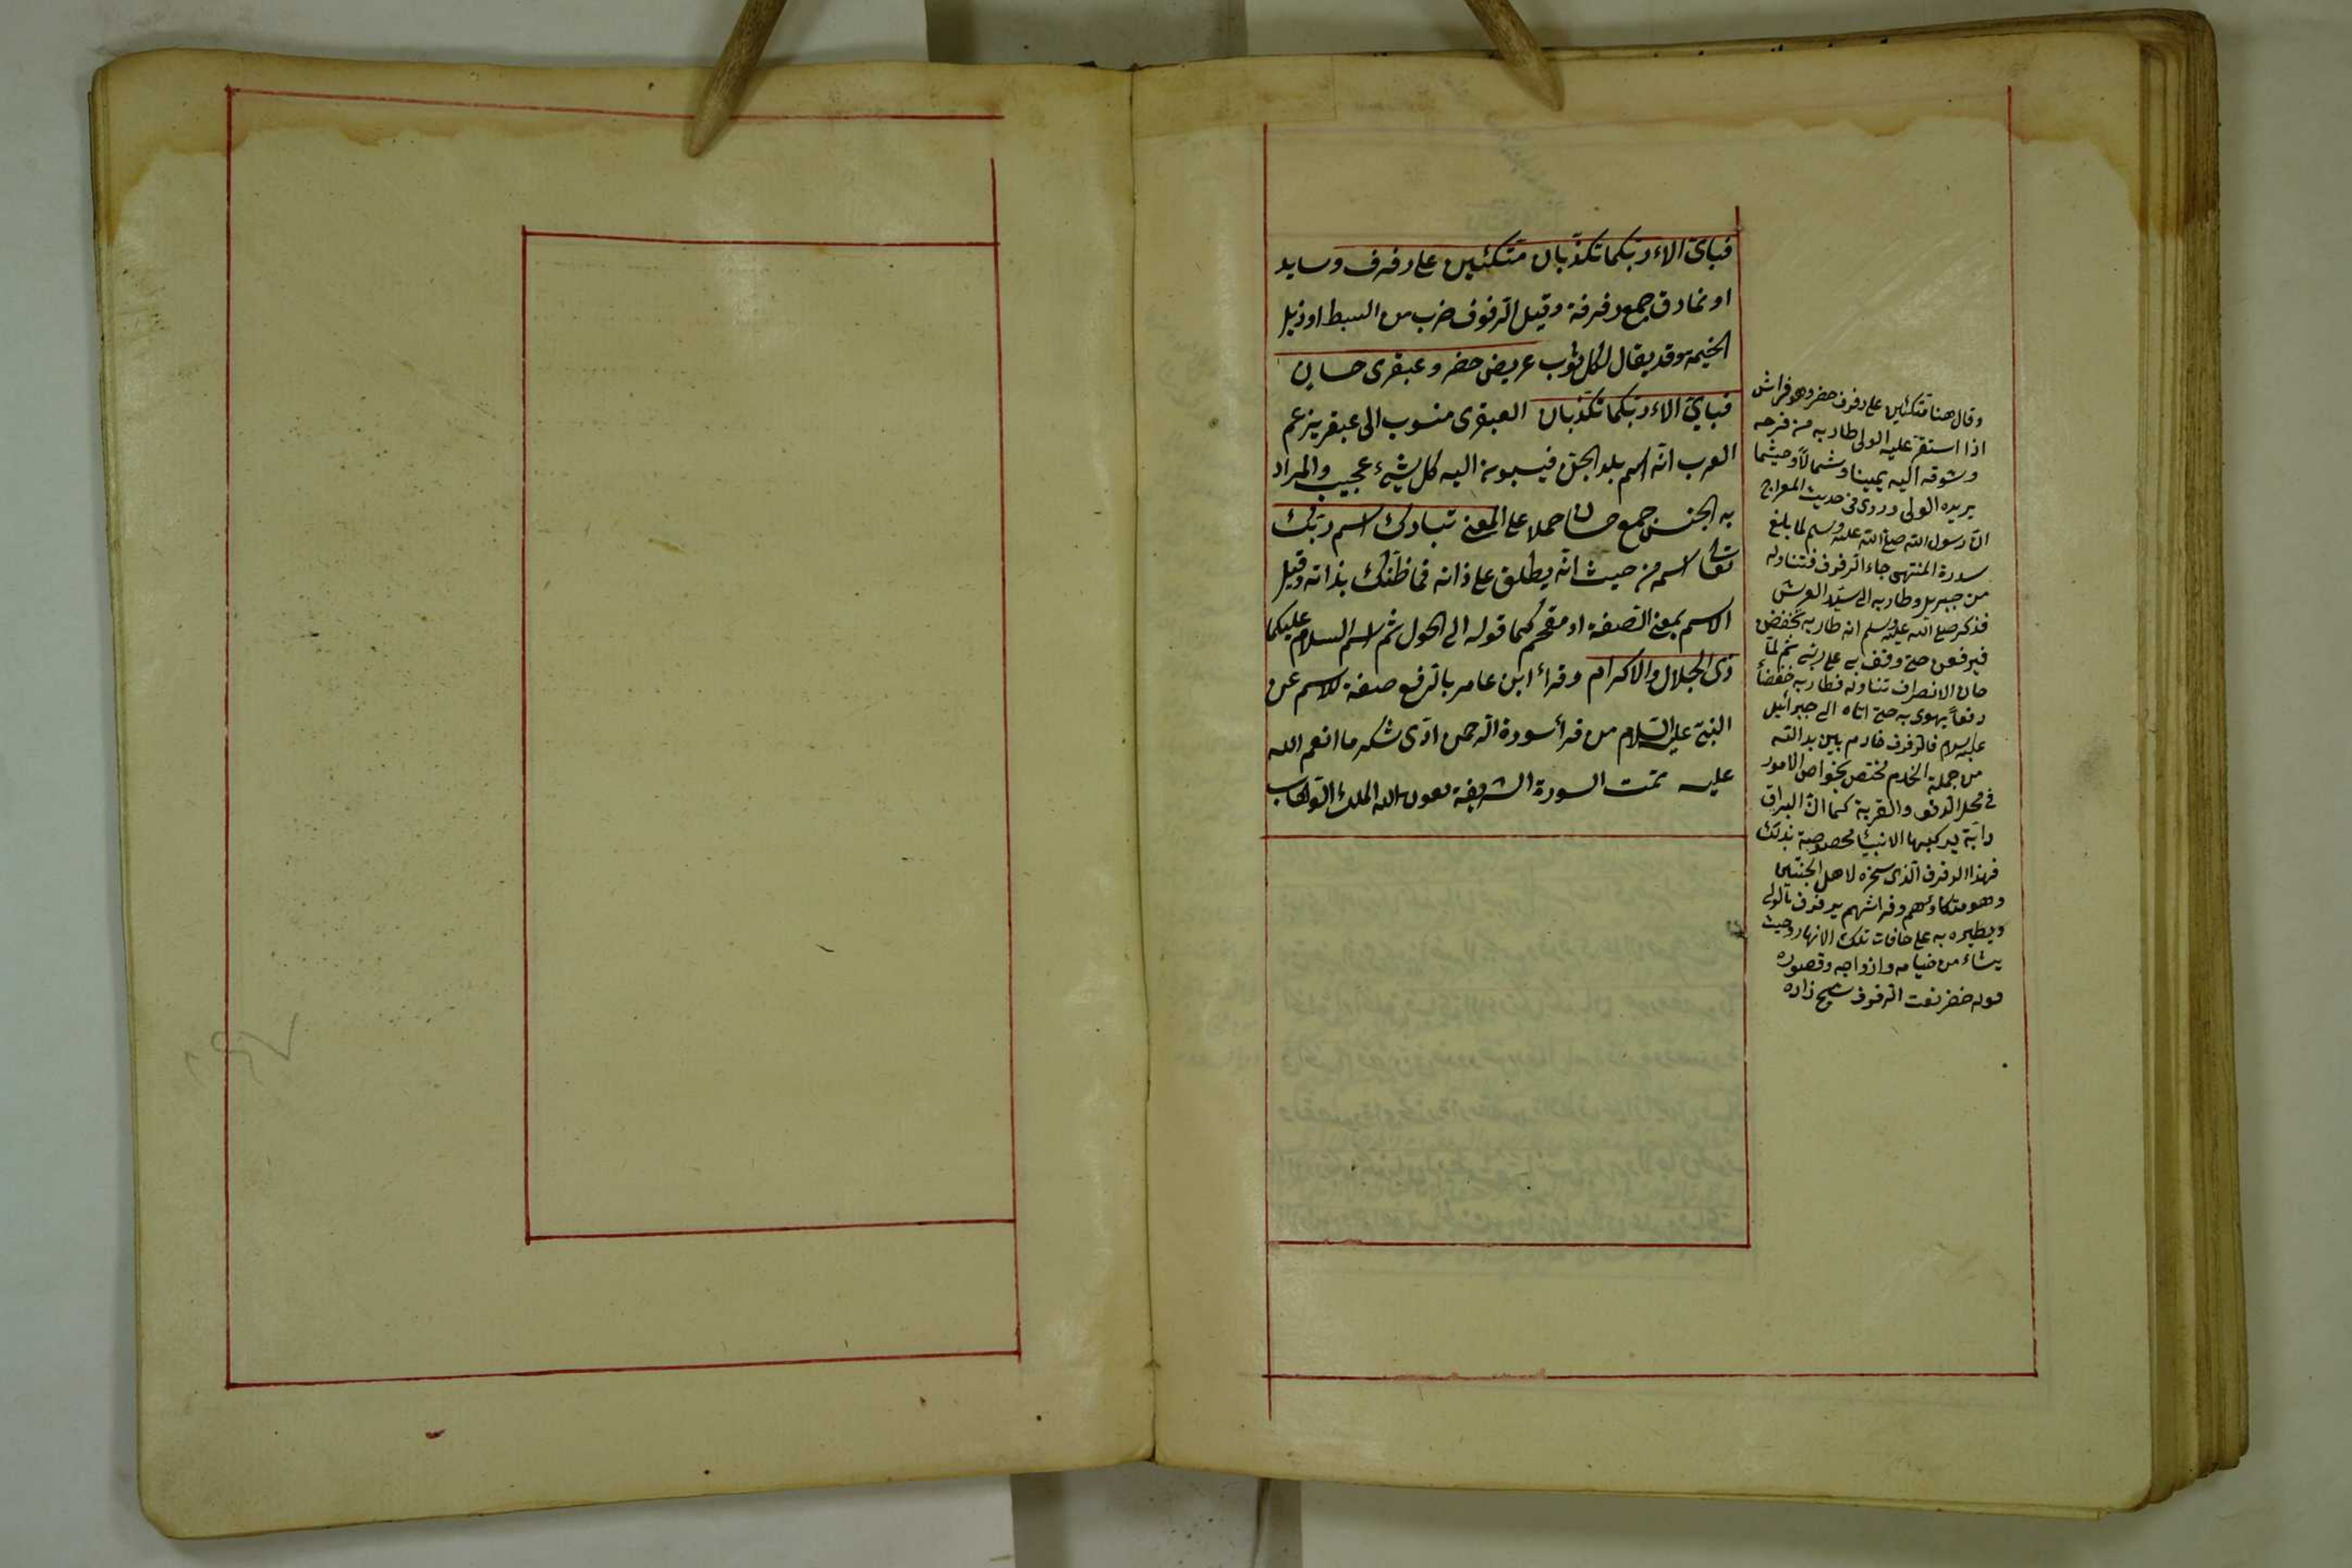 فبأي الاء ربكما تكذبان متكئين على رفرف وسايد
او نمارق جمع رفرفة وقيل الرفرف ضرب من البسط او ذيل
الخيمة وقد يقال لكل ثوب عريض خضر وعبقرى حسان
فبأي الاء ربكما تكذبان العبقرى منسوب الى عبقر يزعم
العرب انه اسم بلد الجن فينسبون اليه كل شىء عجيب والمراد
به الجنس جمع حسان حملا على المعنى تبارك اسم ربك
تعالى اسمه من حيث انه يطلق على ذاته فما ظنك بذاته وقيل
الاسم بمعنى الصفة او مقحم كما قوله الى الحول ثم اسم السلام عليكما
ذى الجلال والاكرام وقرأ ابن عامر بالرفع صفة للاسم عن
النبى عليه السلام من قرأ سورة الرحمن ادى شكر ما انعم الله
عليه تمت السورة الشريفة بعون الله الملك الوهاب
وقال هنا متكئين على رفرف خضر وهو فراش
اذا استقر عليه الولى طار به من فرحه
وشوقه اليه يمينا وشمالا وحيثما
يريده الولى وروى فى حديث المعراج
ان رسول الله صلى الله عليه وسلم لما بلغ
سدرة المنتهى جاء الرفرف فتناوله
من جبريل وطار به الى سند العرش
فذكر صلى الله عليه وسلم انه طار به يخفض
فيرفعنى حتى وقف بى على ربى ثم لما
حان الانصراف تناوله فطار به خفضا
رفعا يهوى به حتى اتاه الى جبرائيل
عليه السلام فالرفرف خادم بين يد الله
من جملة الخدم مختص بخواص الامور
فى محل الدنو والقربة كما ان البراق
دابة يركبها الانبياء مخصوصة بذلك
فهذا الرفرف الذى سخره لاهل الجنتين
وهو متكاؤهم وفراشهم يرفرف بالولى
ويطير به على حافات تلك الانهار وحيث
يشاء من خيامه وازواجه وقصوره
قوله خضر نعت الرفرف شيخ زاده